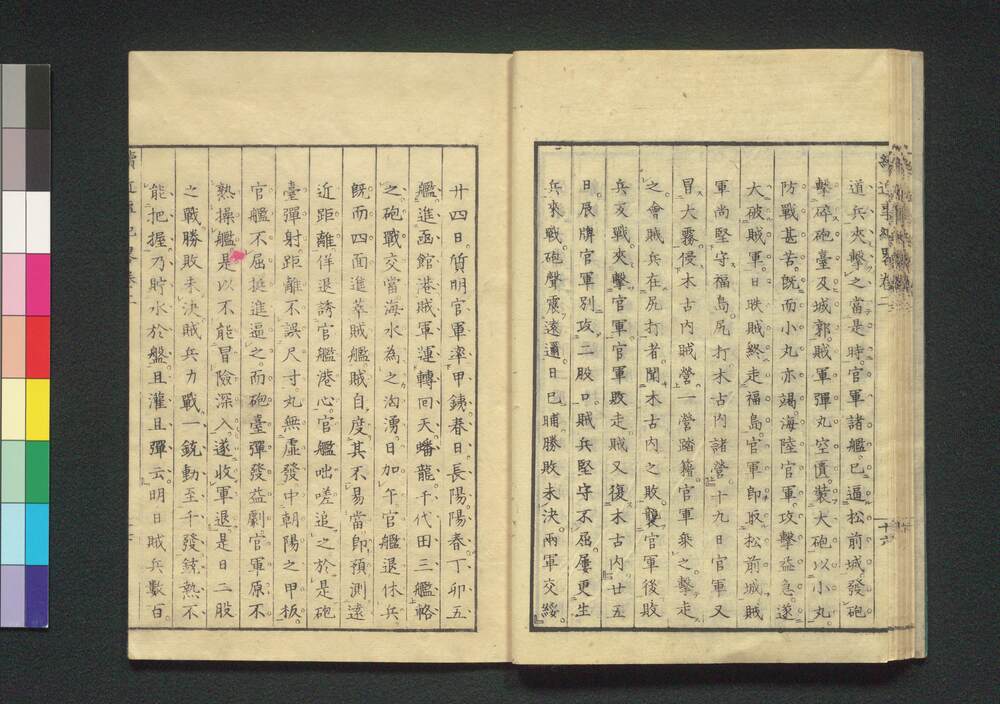 道兵夾擊之當是時官軍諸艦已逼松前城發砲
擊碎砲臺及城郭賊軍彈丸空匱裝大砲以小丸
防戰甚苦既而小丸亦竭海陸官軍攻擊益急遂
大破賊軍日昳賊終走福島官軍即取松前城賊
軍尚堅守福島尻打木古内諸營十九日官軍又
冒大霧侵木古内賊營一營踏籍官軍乘之擊走
之會賊兵在尻打者聞木古内之敗襲官軍後敗
兵反戰夾擊官軍官軍敗走賊又復木古内廿五
日辰牌官軍別攻二股口賊兵堅守不屈屢更生
兵來戰砲聲震遠邇日已晡勝敗未決兩軍交綏
十六
廿四日質明官軍率甲鉄春日長陽陽春丁卯五
艦進函館港賊軍運轉回天蟠龍千代田三艦輅
之砲戰交當海水為之沟湧日加午官艦退休兵
既而四面進萃賊艦賊自度其不易當即預測遠
近距離佯退誘官艦港心官艦咄嗟追之於是砲
臺彈射距離不誤尺寸丸無虛發中朝陽之甲板
官艦不屈挺進逼之而砲臺彈發益劇官軍原不
熟操艦是以不能冒險深入遂收軍退是日二股
之戰勝敗未決賊兵力戰一銃動至千發銃熱不
能把握乃貯水於盤且灌且彈云明日賊兵數百